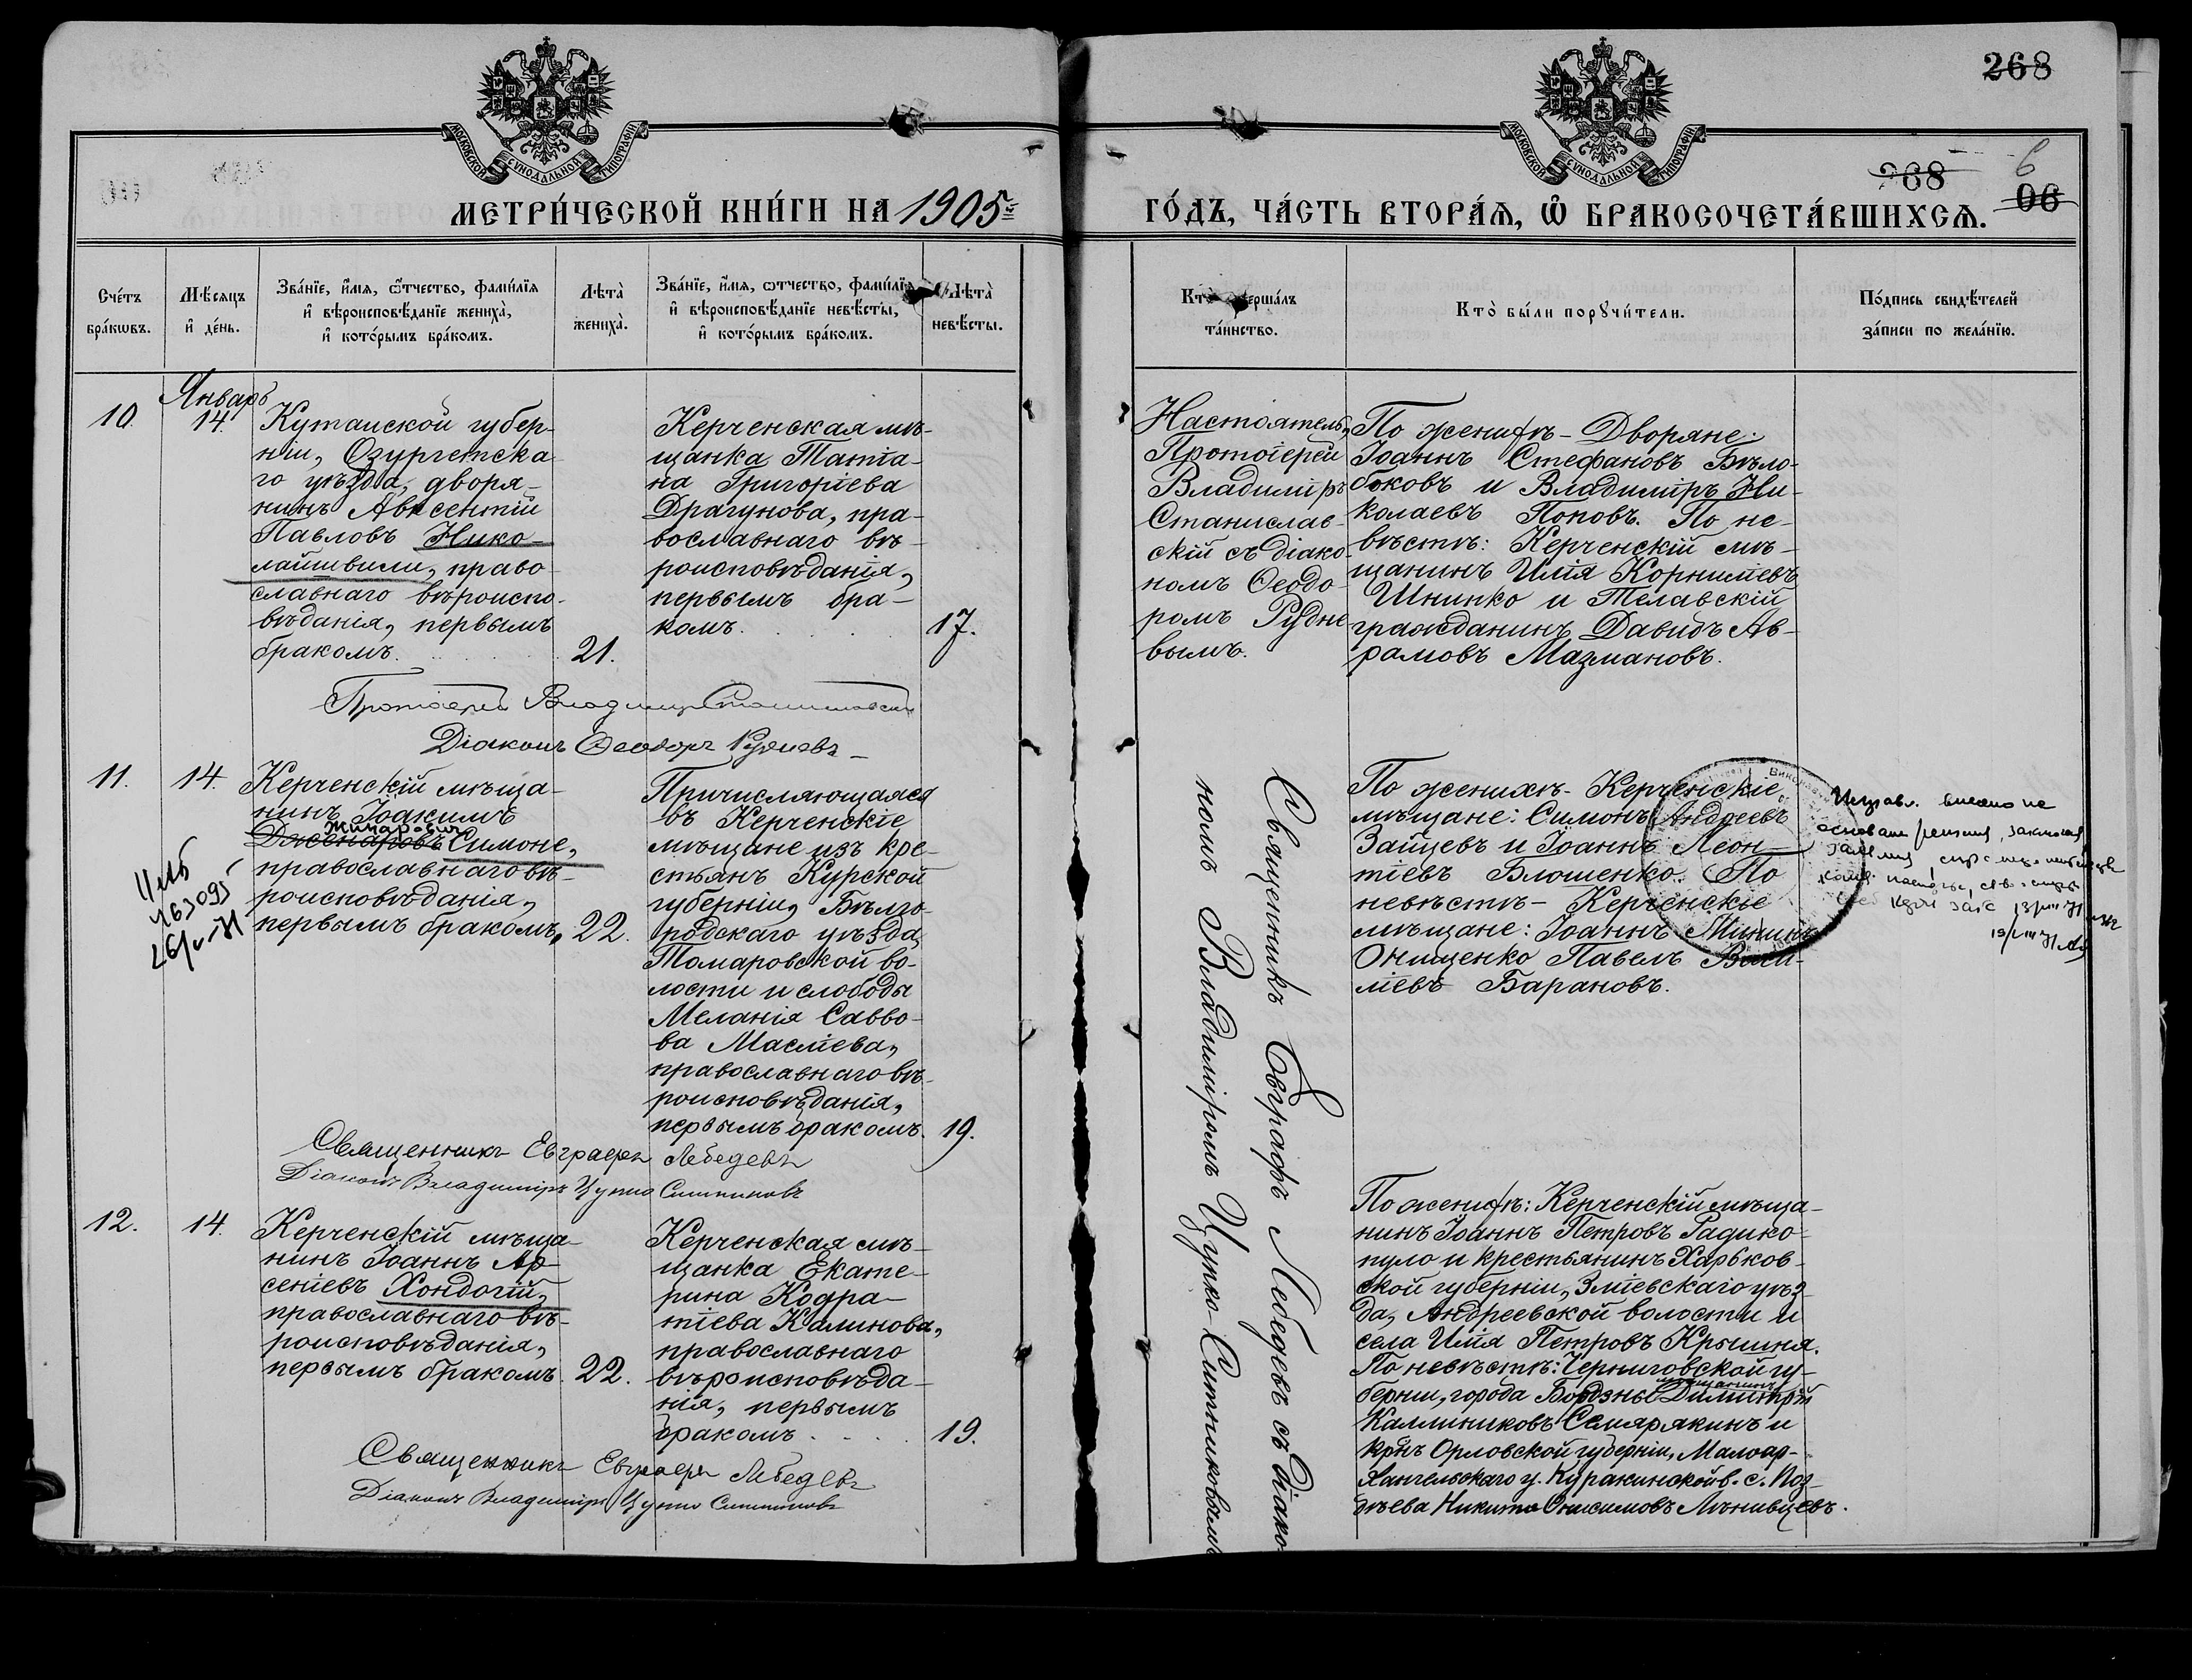 268
268
6
06
МОСКОВСКОЙ СѴНОДАЛЬНОЙ ТИПОГРАФІИ
МЕТРИ́ЧЕСКОЙ КНИ́ГИ НА 1905й
МОСКОВСКОЙ СѴНОДАЛЬНОЙ ТИПОГРАФІИ
ГО́ДЪ, ЧА́СТЬ ВТОРА́Ѧ, Ѽ БРАКОСОЧЕТА́ВШИХСѦ.
Сче́тъ
бра́кѡвъ.
Мѣ́сяцъ
и҆ де́нь.
Зва́нїе, и҆́мя, ѻ҆́тчество, фами́лїя
и҆ вѣроисповѣ́данїе жениха̀,
и҆ кото́рымъ бра́комъ.
Лѣта̀
жениха̀.
Зва́нїе, и҆́мя, ѻтчество, фами́лїя
и҆ вѣроисповѣ́данїе невѣ́сты,
и҆ кото́рымъ бра́комъ.
Лѣта̀
невѣ́сты.
Кто̀ соверша́лъ
та́инство.
Кто̀ бы́ли порꙋчи́тели.
По́дпись свидѣ́телей
за́писи по жела́нїю.
Январь
10.
14.
Кутаиской губер-
ніи, Озургетска-
го уѣзда, дворя-
нинъ Авксентій
Павловъ Нико-
лайшвили, право-
славнаго вѣроиспо-
вѣданія, первымъ
бракомъ.
21.
Керченская мѣ-
щанка Татіа-
на Григоріева
Драгунова, пра-
вославнаго вѣ-
роисповѣданія,
первымъ бра-
комъ.
17.
Настоятель,
Протоіерей
Владиміръ
Станислав-
скій съ діако-
номъ Ѳеодо-
ромъ Рудне-
вымъ.
По женихѣ - Дворяне:
Іоаннъ Стефановъ Бѣло-
боковъ и Владиміръ Ни-
колаевъ Поповъ. По не-
вѣстѣ: Керченскій мѣ-
щанинъ Илія Корниліевъ
Шнипко и Телавскій
гражданинъ Давидъ Ав-
рамовъ Мазмановъ.
Протоіерей Владиміръ Станиславскій
Діаконъ Ѳеодоръ Рудневъ
11.
14.
Керченскій мѣща-
нинъ Іоакимъ
Джинарович
Дженаровъ Симоне,
православнаго вѣ-
роисповѣданія,
первымъ бракомъ,
22.
463095
Причисляющаяся
въ Керченскіе
мѣщане изъ кре-
стьянъ Курской
губерніи, Бѣлго-
родскаго уѣзда,
Томаровской во-
лости и слободы
Меланія Савво-
ва Масліева,
православнаго вѣ-
роисповѣданія,
первымъ бракомъ.
19.
Священникъ Евграфъ Лебедевъ съ діако-
номъ Владиміромъ Цупко-Ситниковымъ
По женихѣ - Керченскіе
мѣщане: Симонъ Андреевъ
Зайцевъ и Іоаннъ Леон-
тіевъ Блошенко. По
невѣстѣ - Керченскіе
мѣщане: Іоаннъ Мининъ
Онищенко Павелъ Васи-
ліевъ Барановъ.
Священникъ Евграфъ Лебедевъ
Діаконъ Владиміръ Цупко Ситниковъ
12.
14.
Керченскій мѣща-
нинъ Іоаннъ Ар-
сеніевъ Хондогій,
православнаго вѣ-
роисповѣданія,
первымъ бракомъ.
22.
Керченская мѣ-
щанка Екате-
рина Кодра-
тіева Калинова,
православнаго
вѣроисповѣда-
нія, первымъ
бракомъ.
19.
По женихѣ: Керченскій мѣща-
нинъ Іоаннъ Петровъ Радико-
пуло и крестьянинъ Харьков-
ской губерніи, Зміевскаго уѣз-
да, Андреевской волости и
села Илія Петровъ Крышня.
По невѣстѣ: Черниговской гу-
берніи, города Борзны мѣщанинъ Димитрій
Каллиниковъ Семярякинъ и
крнъ Орловской губерніи, Малоар-
хангельскаго у. Куракинской в. с. Поз-
дѣева Никита Онисимовъ Мѣнивцевъ.
Священникъ Евграфъ Лебедевъ
Діаконъ Владиміръ Цупко Ситниковъ